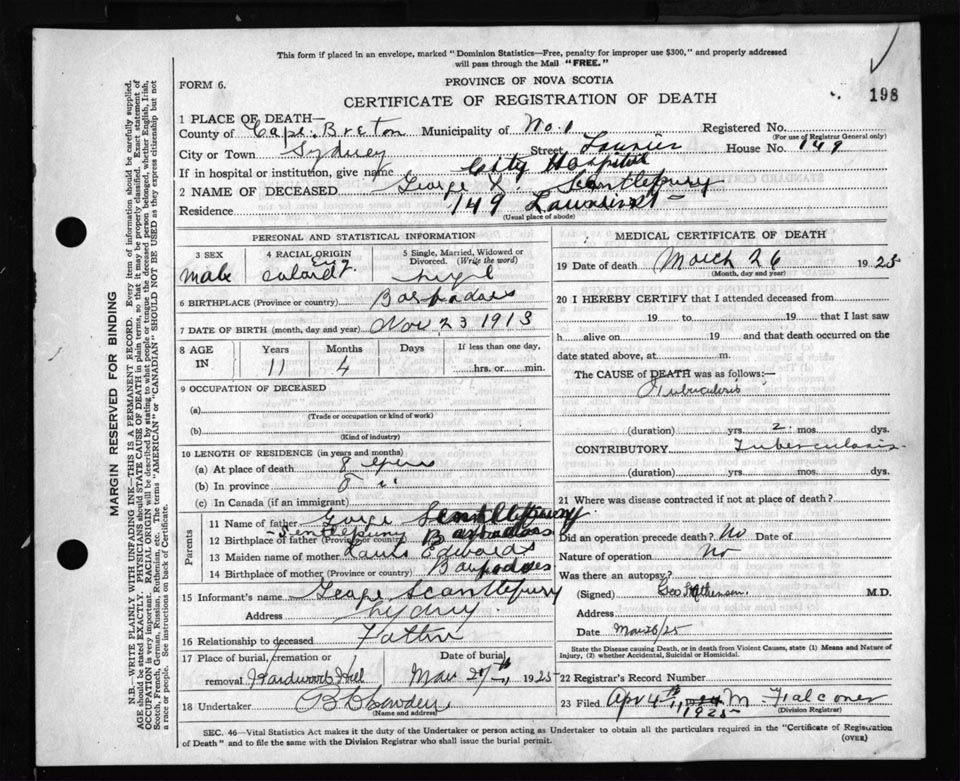 This form if placed in an envelope, marked "Dominion Statistics—Free, penalty for improper use $300," and properly addressed
will pass through the Mail "FREE."
FORM 6.
PROVINCE OF NOVA SCOTIA
198
CERTIFICATE OF REGISTRATION OF DEATH
1 PLACE OF DEATH—
County of Cape Breton Municipality of No. 1 Registered No.
(For use of Registrar General only)
City or Town Sydney Street House No. 149
If in hospital or institution, give name City Hospital
2 NAME OF DECEASED George Scantlebury
Residence 749
(Usual place of abode)
PERSONAL AND STATISTICAL INFORMATION
3 SEX
male
4 RACIAL ORIGIN
5 Single, Married, Widowed or
Divorced. (Write the word)
6 BIRTHPLACE (Province or country) Barbadoes
7 DATE OF BIRTH (month, day and year) Nov 23 1913
8 AGE
IN
Years
11
Months
4
Days
If less than one day,
hrs. or min.
9 OCCUPATION OF DECEASED
(a)
(Trade or occupation or kind of work)
(b)
(Kind of industry)
10 LENGTH OF RESIDENCE (in years and months)
(a) At place of death 8 years
(b) In province 8 "
(c) In Canada (if an immigrant)
Parents
11 Name of father Scantlebury
12 Birthplace of father (Province or country) Barbadoes
13 Maiden name of mother Edwards
14 Birthplace of mother (Province or country) Barbadoes
15 Informant's name Scantlebury
Address Sydny
16 Relationship to deceased Father
17 Place of burial, cremation or
removal Hardwood Hill
Date of burial,
Mar 27th, 1925
18 Undertaker
(Name and address)
MEDICAL CERTIFICATE OF DEATH
19 Date of death March 26 1925
(Month, day and year)
20 I HEREBY CERTIFY that I attended deceased from
19 to 19 that I last saw
h alive on 19 and that death occurred on the
date stated above, at m.
The CAUSE of DEATH was as follows:—
Tuberculosis
(duration) yrs. 2 mos. dys.
CONTRIBUTORY Tuberculosis
(duration) yrs. mos. dys.
21 Where was disease contracted if not at place of death?
Did an operation precede death? No Date of
Nature of operation No
Was there an autopsy?
(Signed) M.D.
Address
Date Mar 26/25
State the Disease causing Death, or in death from Violent Causes, state (1) Means and Nature of
Injury, (2) whether Accidental, Suicidal or Homicidal.
22 Registrar's Record Number
23 Filed Apr 4th 1925 M Falconer
(Division Registrar)
SEC. 46—Vital Statistics Act makes it the duty of the Undertaker or person acting as Undertaker to obtain all the particulars required in the "Certificate of Registration
of Death" and to file the same with the Division Registrar who shall issue the burial permit.
(OVER)
MARGIN RESERVED FOR BINDING
N.B.—WRITE PLAINLY WITH UNFADING INK—THIS IS A PERMANENT RECORD. Every item of information should be carefully supplied.
AGE should be stated EXACTLY. PHYSICIANS should STATE CAUSE OF DEATH in plain terms, so that it may be properly classified. Exact statement of
OCCUPATION is very important. RACIAL ORIGIN will be described by stating to what people or tongue the deceased person belonged, whether English, Irish,
Scotch, French, German, Russian, Ruthenian, etc. The terms "AMERICAN" or "CANADIAN" SHOULD NOT BE USED as they express citizenship but not
a race or people. See instructions on back of Certificate.